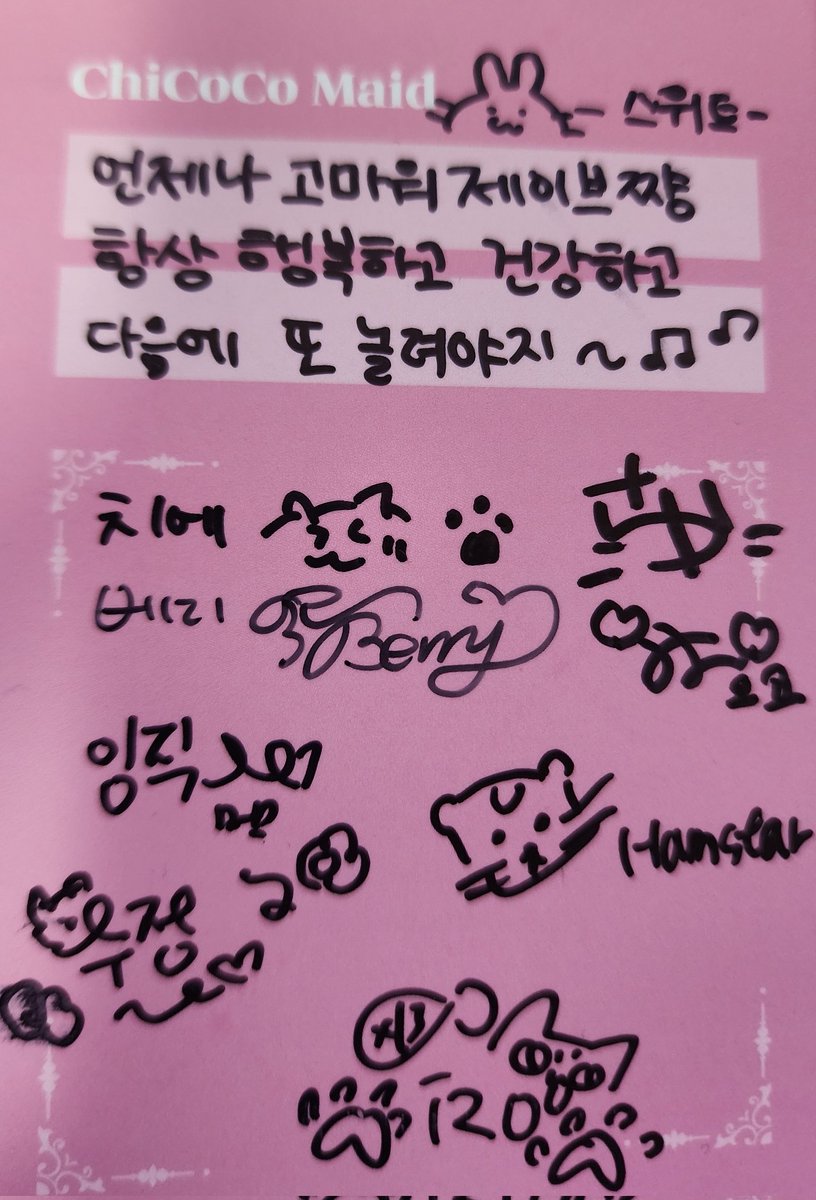 ChiCoCo Maid
스위토-
언제나 고마워 제이브쨩
항상 행복하고 건강하고
다음에 또 놀려야지~♫♪
치에
베리 Berry
임직
Hamstar